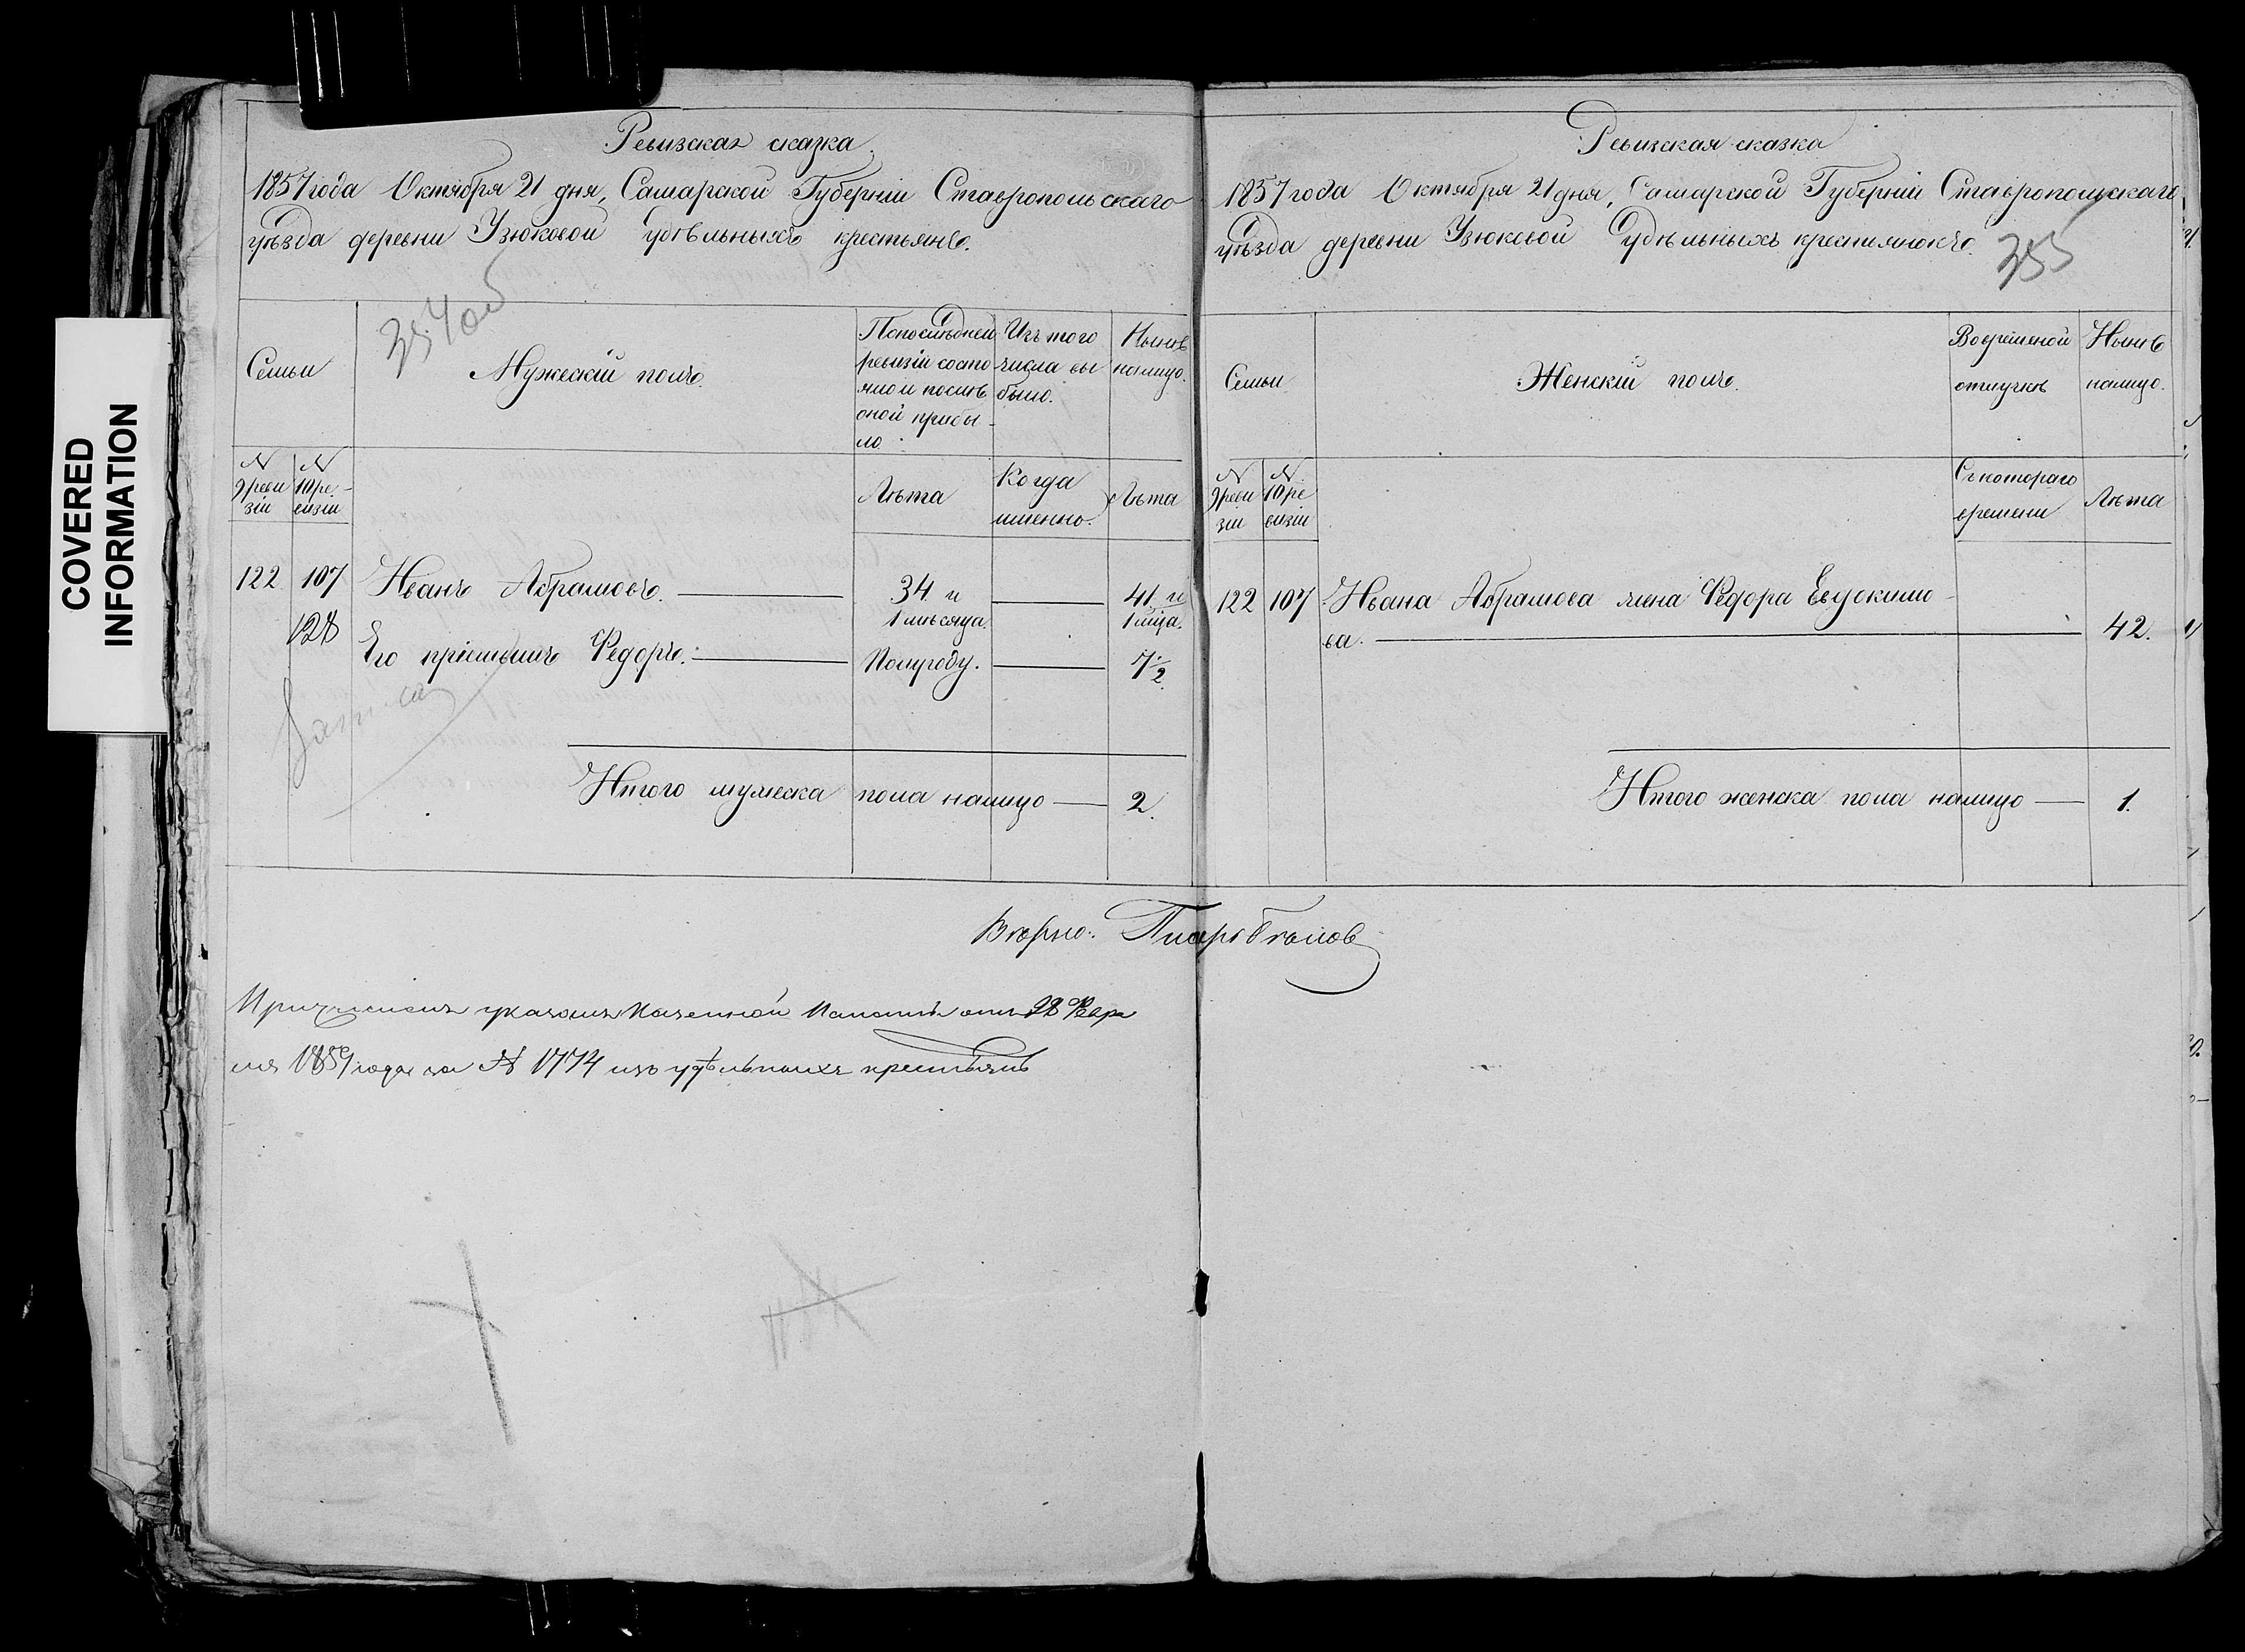 COVERED
INFORMATION
Ревизская сказка.
1857 года Октября 21 дня, Самарской Губерніи Ставропольскаго
уѣзда деревни Узюковой удѣльныхъ крестьянъ.
354 об
Семьи
Мужескій полъ.
Попослѣдней
ревизіи состо
яло и послѣ
оной прибы-
ло.
Изъ того
числа вы
было.
Нынѣ
налицо.
№
9 реви
зіи
№
10 ре-
визіи
Лѣта
Когда
именно.
Лѣта
122 107 Иванъ Абрамовъ. 34 и 41 и
1 мѣсяца. 1 мѣца.
128
Его пріемышъ Федоръ. Полугоду. 7½
Итого мужеска пола налицо — 2.
Ревизская сказка
1857 года Октября 21 дня, Самарской Губерніи Ставропольскаго
уѣзда деревни Узюковой Удѣльныхъ крестьянокъ.
355
Семьи
Женскій полъ.
Вовременой
отлучкѣ
Нынѣ
налицо.
№
9 реви
зіи
№
10 ре
визіи
Съкотораго
времени
Лѣта
122 107 Ивана Абрамова жена Федора Евдокимо-
ва. 42.
Итого женска пола налицо — 1.
Вѣрно:
Причислен указомъ Казенной Палаты отъ 28 Февра
ля 1859 года за № 1774 изъ удѣльныхъ крестьянъ